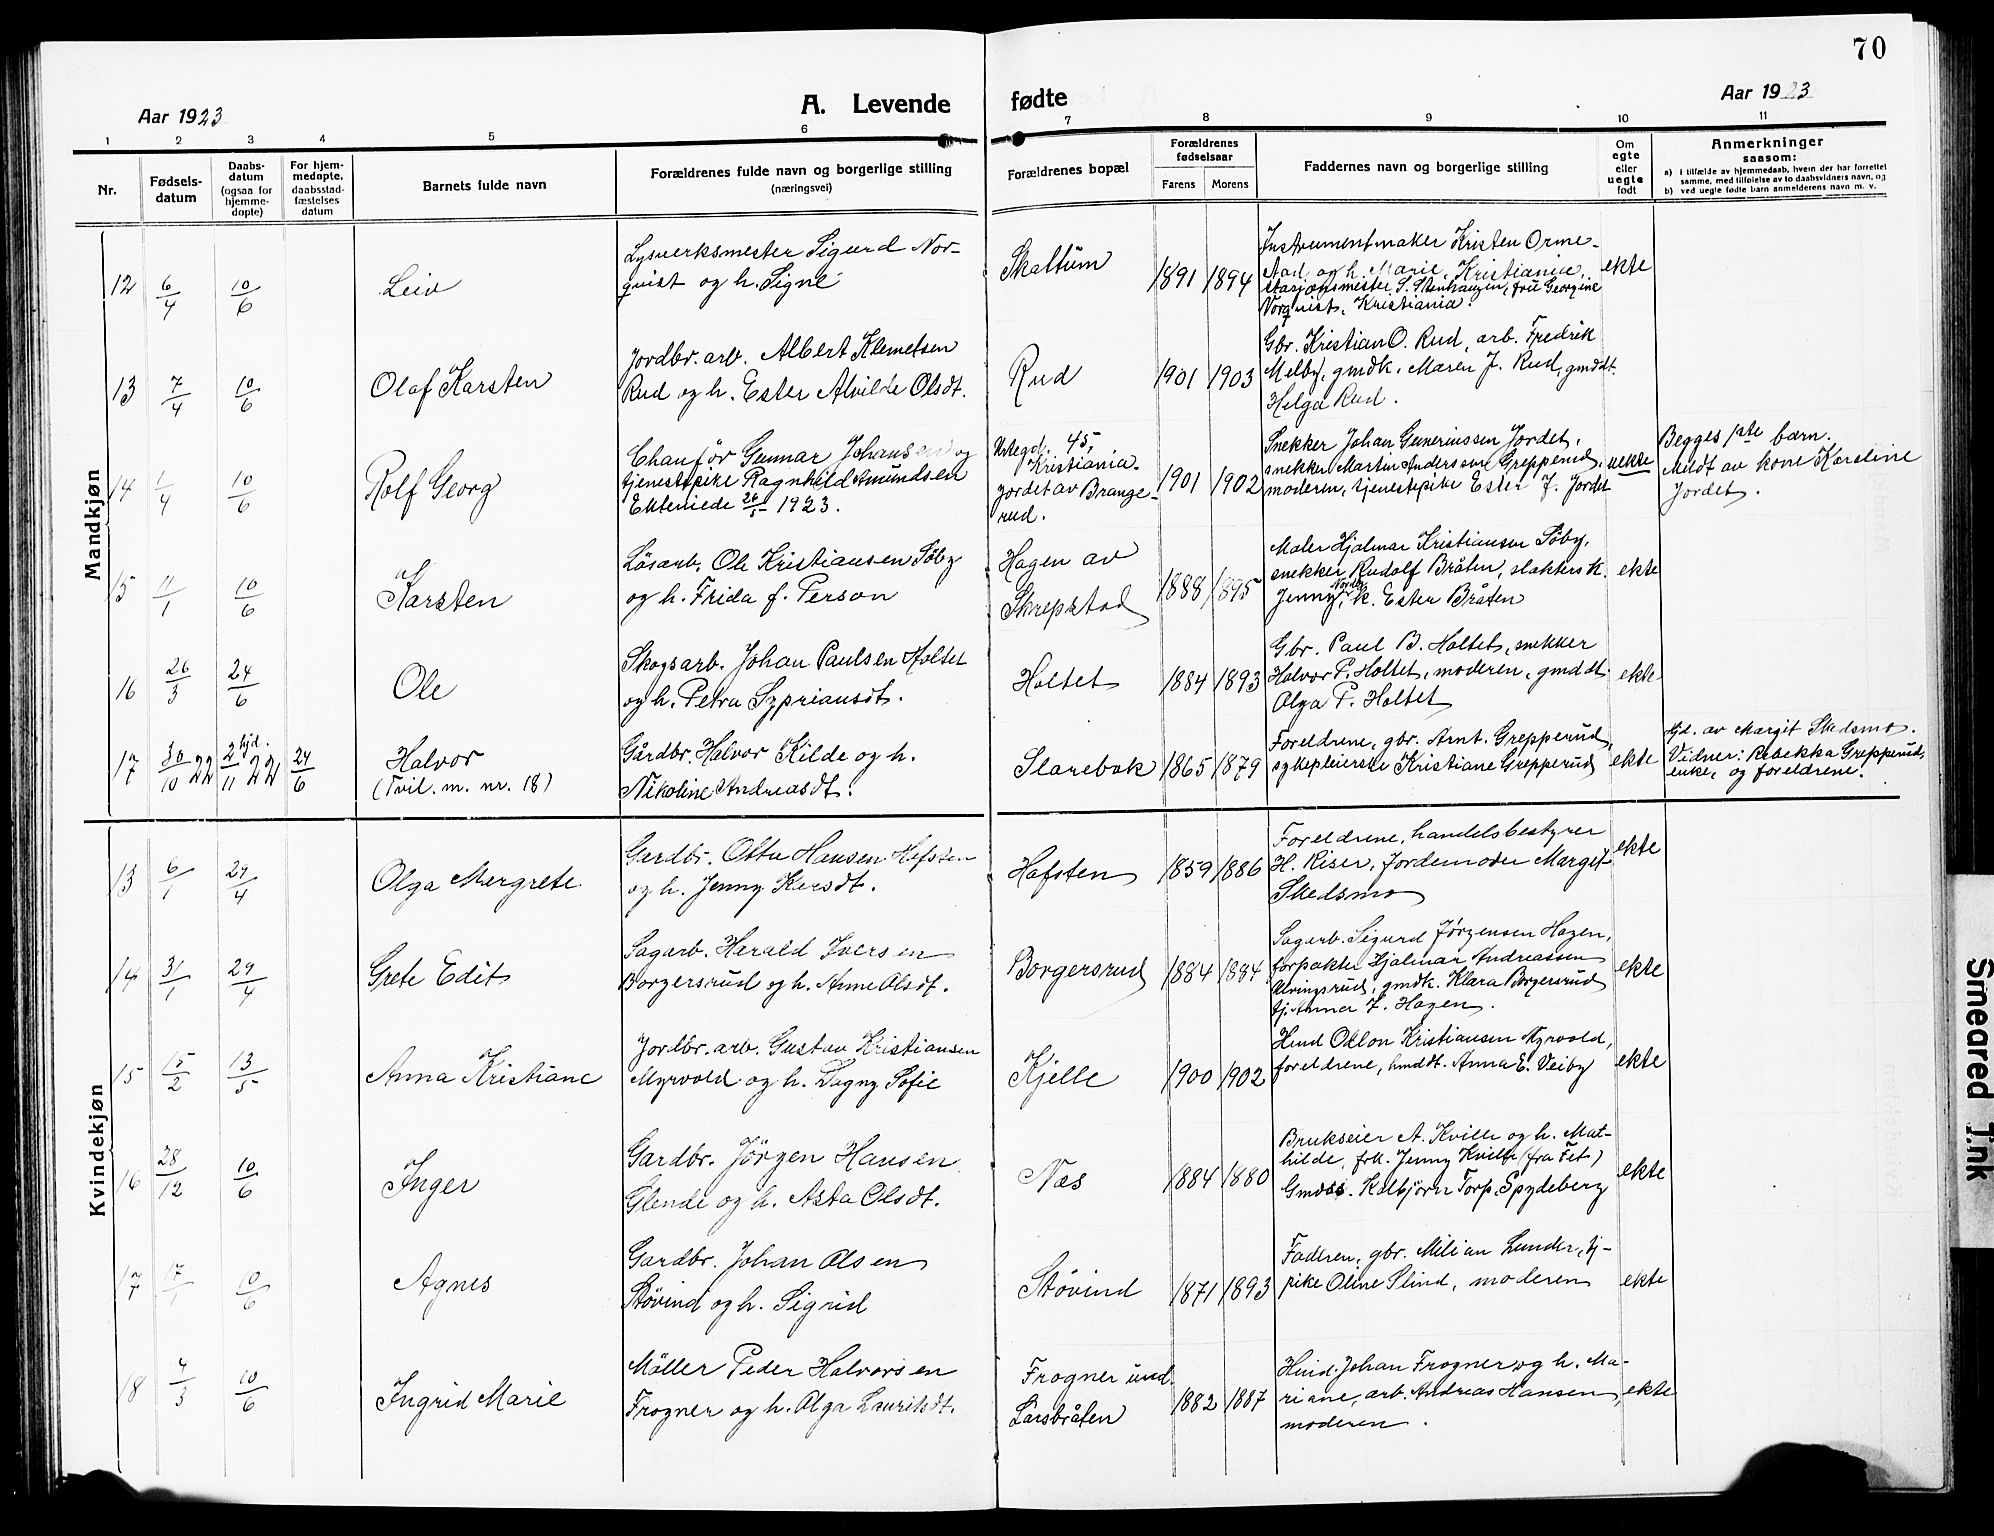 70
Aar 1923
A. Levende
fødte
Aar 1923
1 2 3 4 5 6 7 8 9 10 11
Nr.
Fødsels-
datum
Daabs-
datum
(ogsaa for
hjemme-
døpte)
For hjem-
medøpte,
daabsstad-
fæstelses
datum
Barnets fulde navn
Forældrenes fulde navn og borgerlige stilling
(næringsvei)
Forældrenes bopæl
Forældrenes
fødselsaar
Farens Morens
Faddernes navn og borgerlige stilling
Om
egte
eller
uegte
født
Anmerkninger
saasom:
a) i tilfælde av hjemmedaab, hvem der har forrettet
samme, med tilføielse av to daabsvidners navn, og
b) ved uegte fødte barn anmelderens navn m. v.
Mandkjøn
12 6/4 10/6 Leiv
Lysverksmester Sigurd Nor-
qvist og h. Signe
Skaltum 1891 1894
Instrumentmaker Kristen Orme-
stad og h. Marie, Kristiania,
stasjonsmester S. Stenhaugen, fru Georgine
Norqvist, Kristiania.
ekte
13 7/4 10/6 Olaf Karsten
Jordbr. arb. Albert Klemetsen
Rud og h. Ester Alvilde Olsdt.
Rud 1901 1903
Gbr. Kristian O. Rud, arb. Fredrik
Melby, gmdk. Maren J. Rud, gmddt.
Helga Rud.
14 1/4 10/6 Rolf Georg
Chaufför Gunnar Johansen og
tjenestepike Ragnhild Amundsen
Ekteviede 26/5 1923.
Urtegd. 45,
Kristiania.
Jordet av Brange-
rud.
1901 1902
Snekker Johan Gunerinssen Jordet,
snekker Martin Anderssen Grepperud,
moderen, tjenestepike Ester J. Jordet
uekte
Begges 1ste barn.
Meldt av kone Karoline
Jordet.
15 11/1 10/6 Karsten
Løsarb. Ole Kristiansen Søby
og h. Frida f. Person
Hagen av
Skrepstad
1888 1895
Maler Hjalmar Kristiansen Søby,
snekker Rudolf Bråten, slakters k.
Jenny Nordby, k. Ester Bråten
ekte
16 26/3 24/6 Ole
Skogsarb. Johan Paulsen Holtet
og h. Petra Sypriansdt.
Holtet 1884 1893
Gbr. Paul B. Holtet, snekker
Halvor P. Holtet, moderen, gmddt.
Olga P. Holtet
ekte
17 30/10 22 hjd. 2/11 22 24/6 Halvor
(Tvil. m. nr. 18)
Gårdbr. Halvor Kilde og h.
Nikoline Andreasdt.
Slarebak 1865 1879
Foreldrene, gbr. Arnt. Grepperud,
sykepleierske Kristiane Grepperud
ekte
Hjd. av Margit Skedsmo.
Vidner: Rebekka Grepperud,
enke, og foreldrene.
Kvindekjøn
13 6/1 29/4 Olga Margrete
Gardbr. Otto Hansen Hafsten
og h. Jenny Karsdt.
Hafsten 1859 1886
Foreldrene, handelsbestyrer
H. Riser, Jordemoder Margit
Skedsmo
ekte
14 31/1 29/4 Grete Edit
Sagarb. Harald Iversen
Borgersrud og h. Anne Olsdt.
Borgersrud 1884 1884
Sagarb. Sigurd Jørgensen Hagen,
forpakter Hjalmar Andreassen
Alvingsrud, gmdk. Klara Borgersrud
tj. Anna J. Hagen.
ekte
15 15/2 13/5 Anna Kristiane
Jordbr. arb. Gustav Kristiansen
Myrvold og h. Dagny Sofie
Kjelle 1900 1902
Hmd Otton Kristiansen Myrvold,
foreldrene, hmddt. Anna E. Veiby
ekte
16 28/12 10/6 Inger
Gardbr. Jörgen Hansen
Glende og h. Asta Olsdt.
Nas 1884 1880
Brukseier A. Kville og h. Mat-
hilde, frk. Jenny Kville (fra Fet)
Gmdss. Kolbjørn Torp, Spydeberg
ekte
17 17/1 10/6 Agnes
Gardbr. Johan Olsen
Støvind og h. Sigrid
Støvind 1871 1893
Faderen, gbr. Milian Lunder, tj-
pike Oline Slind, moderen
ekte
18 4/3 10/6 Ingrid Marie
Møller Peder Halvorsen
Frogner og h. Olga Lauritsdt.
Frogner und.
Larsbråten
1882 1887
Hmd. Johan Frogner og h. Ma-
riane, arb. Andreas Hansen,
moderen.
ekte
Smeared Ink